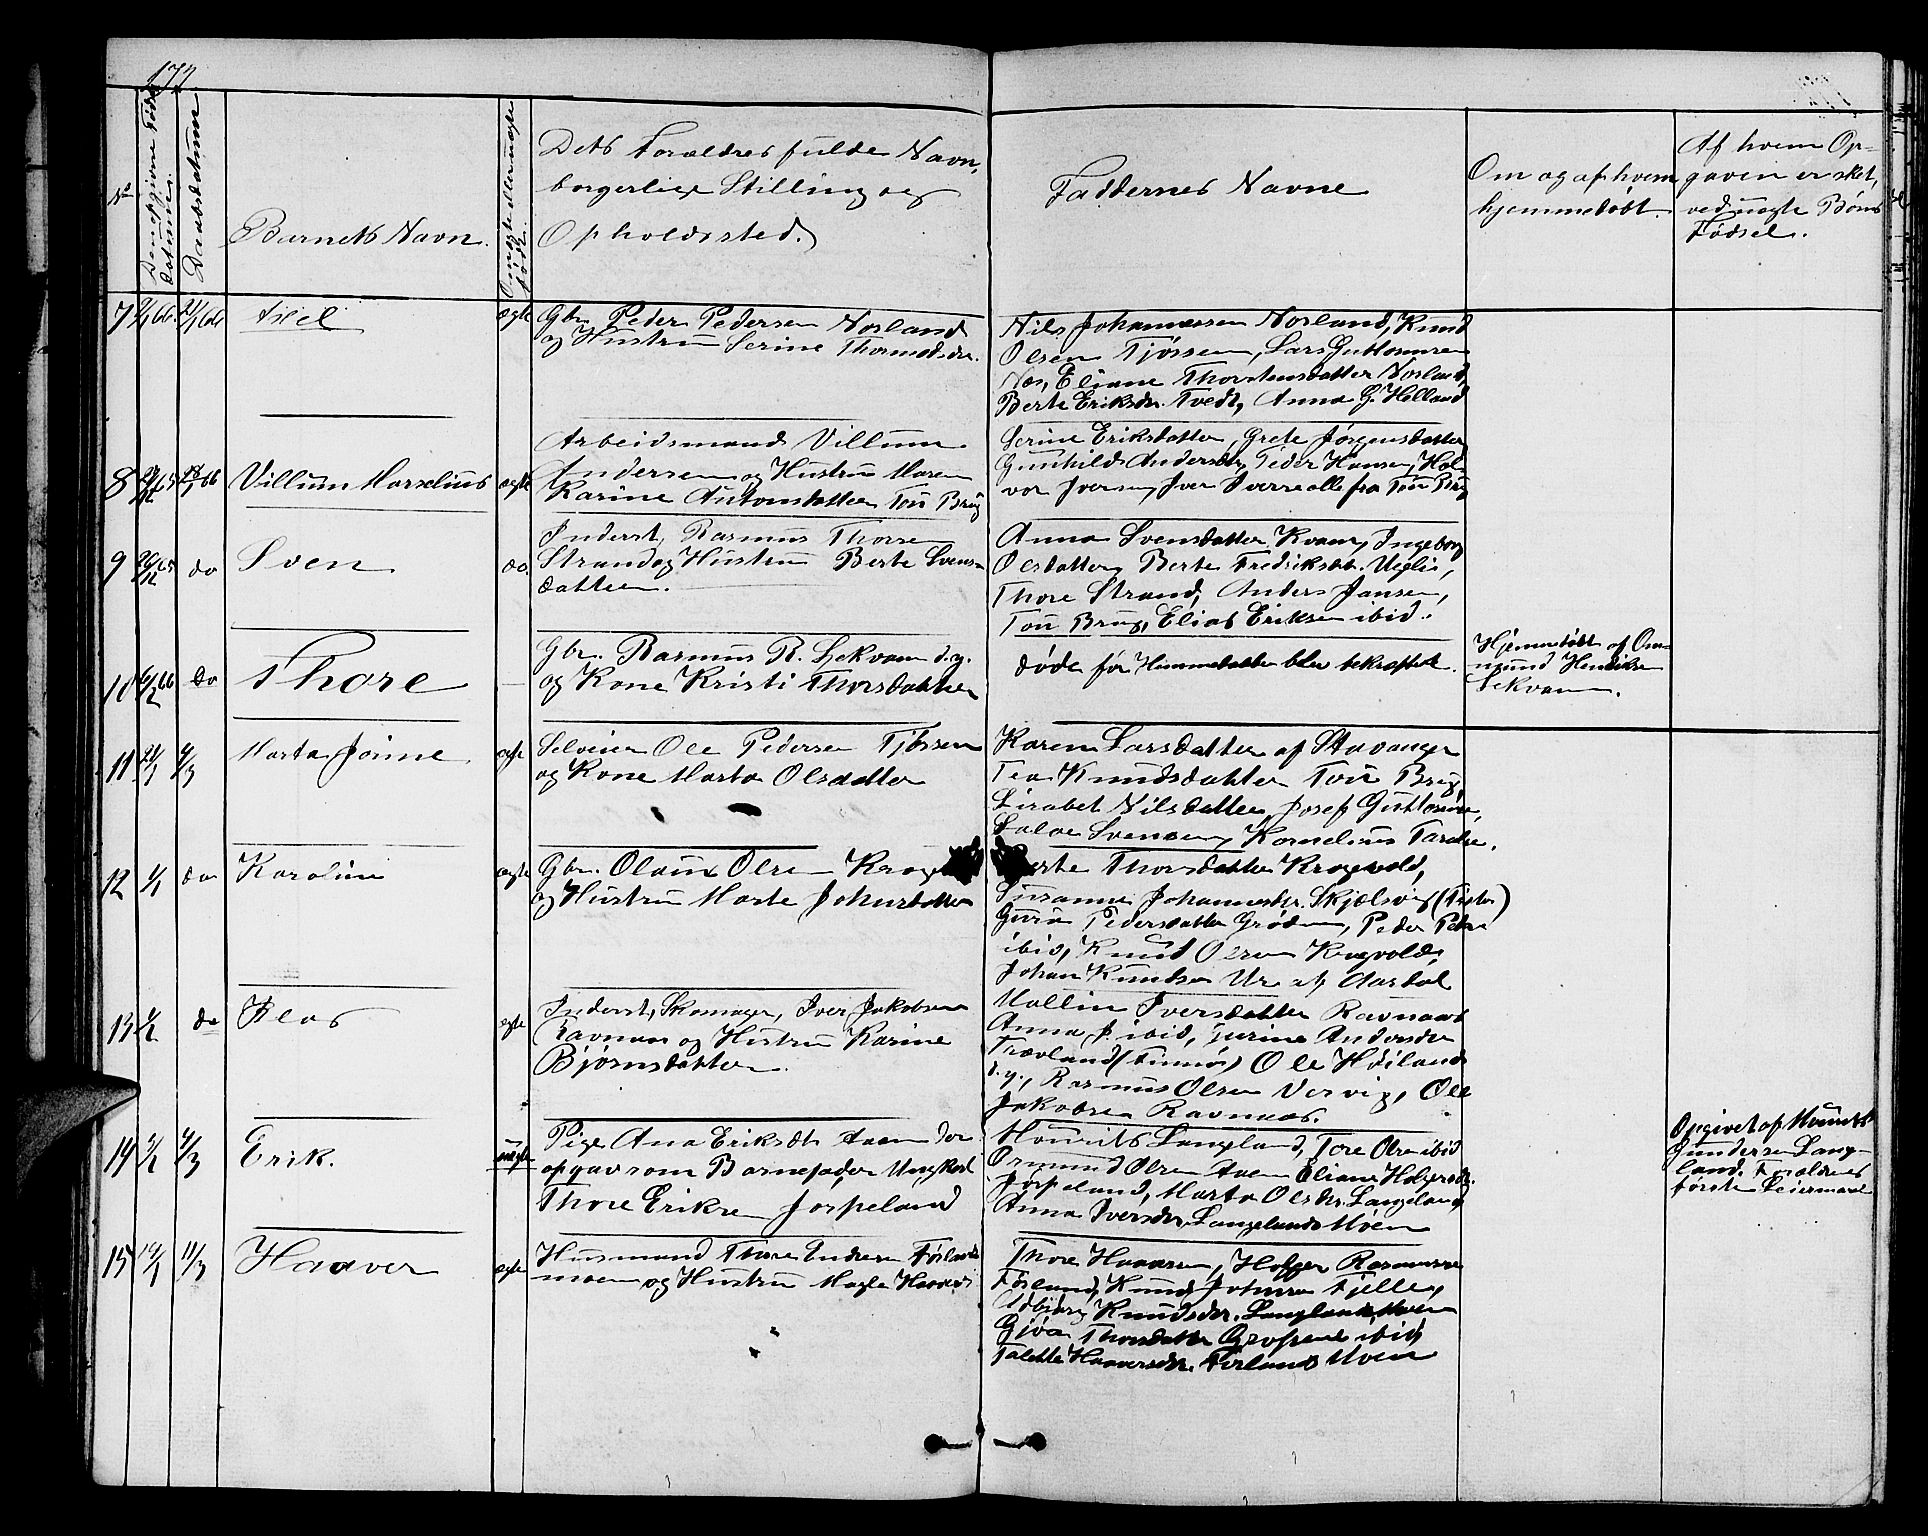 172
No
Den opgivne Føde-
datum.
Daabsdatum
Barnets Navn.
Om ægte eller uægte
født.
Dets Forældres fulde Navn,
borgerlige Stilling og
Opholdssted.
Faddernes Navne
Om og af hvem
hjemmedøbt.
Af hvem Op-
gaven er sket,
ved uægte Børns
Fødsel.
7
ægte
Gbr. Peder Pedersen Norland
og Hustru Serine Thormodsdr.
Nils Johannessen Norland, Knud
Olsen Tjøssem, Lars Guttormsen
Næs, Eliane Thorstensdatter Norland,
Berte Eriksdr. Tvedt, Anna G. Helland
8
Villum Marselius
ægte
Arbeidsmand Villum
Andersen og Hustru Maren
Karine Antonsdatter Tou Brug
Serine Eriksdatter, Grete Jørgensdatter
Gunhild Andersdr, Peder Hansen, Hal-
vor Iversen, Iver Iversen alle fra Tou Brug
9
do
Sven
do.
Inderst, Rasmus Thorsen
Strand og Hustru Berte Svens-
datter.
Anna Svensdatter Kvam, Ingeborg
Olsdatter, Berte Fredriksdtr.
Thore Strand, Anders Jansen,
Tou Brug, Elias Eriksen ibid.
10
do
Thore
Gbr. Rasmus R. Sekvam d.y.
og Kone Kristi Thorsdatter
døde før Hjemmedaaben blev bekræftet.
Hjemmedøbt af Om-
mund Henriksen
Sekvam.
11 21/1 4/3
Marta Jorine
ægte
Selveier Ole Pedersen Tjøssem
og Kone Marta Olsdatter
Karen Larsdatter af Stavanger
Tea Knudsdatter Tou Brug,
Lisabet Nilsdatter, Josef Guttormsen,
Salve Svensen, Kornelius Taraldsen.
12 1/1 do
Karoline
ægte
Gbr. Olaus Olsen
og Hustru Marte Johnsdatter
Berte Thorsdatter Krogevold,
Susanne Johannesdtr. Skjælsvig (Fister)
Guro Pedersdatter Grødem, Peder Peders.
ibid, Knud Olsen Krogevold,
Johan Knudsen Ur af Aardal
13 do
Klas
ægte
Inderst, Skomager, Iver Jakobsen
Ravnaas og Hustru Karine
Bjørnsdatter.
Mallin Iversdatter Ravnaas
Anna J. ibid, Jurine Andersdtr
(Finnø) Ole Høiland
d.y., Rasmus Olsen Vervig, Ole
Jakobsen Ravnaas.
14 4/3
Erik.
uægte
Pige Ana Eriksdtr Aaen der
opgav som Barnefader Ungkarl
Thore Eriksen Jørpeland
Mourits Langland, Tore Olsen ibid
Ommund Olsen Aaen, Eliane Holgersdr.
Jørpeland, Marta Olsdr. Langeland,
Anna Iversdr. Langelands Moen
Opgivet af Mourits
Gundersen Lang-
land. Forældrenes
første Leiermaal
15 11/3
Haaver
ægte
Husmand Thore Endresen Førlands-
moen og Hustru Magla Haaversd.
Thore Haaversen, Holger Rasmussen
Førland, Knud Johnsen Fjelle,
Adbjørg Knudsdr. Langelands Moen
Gjøa Thorsdatter ibid,
Talette Haaversdr. Førlands Moen